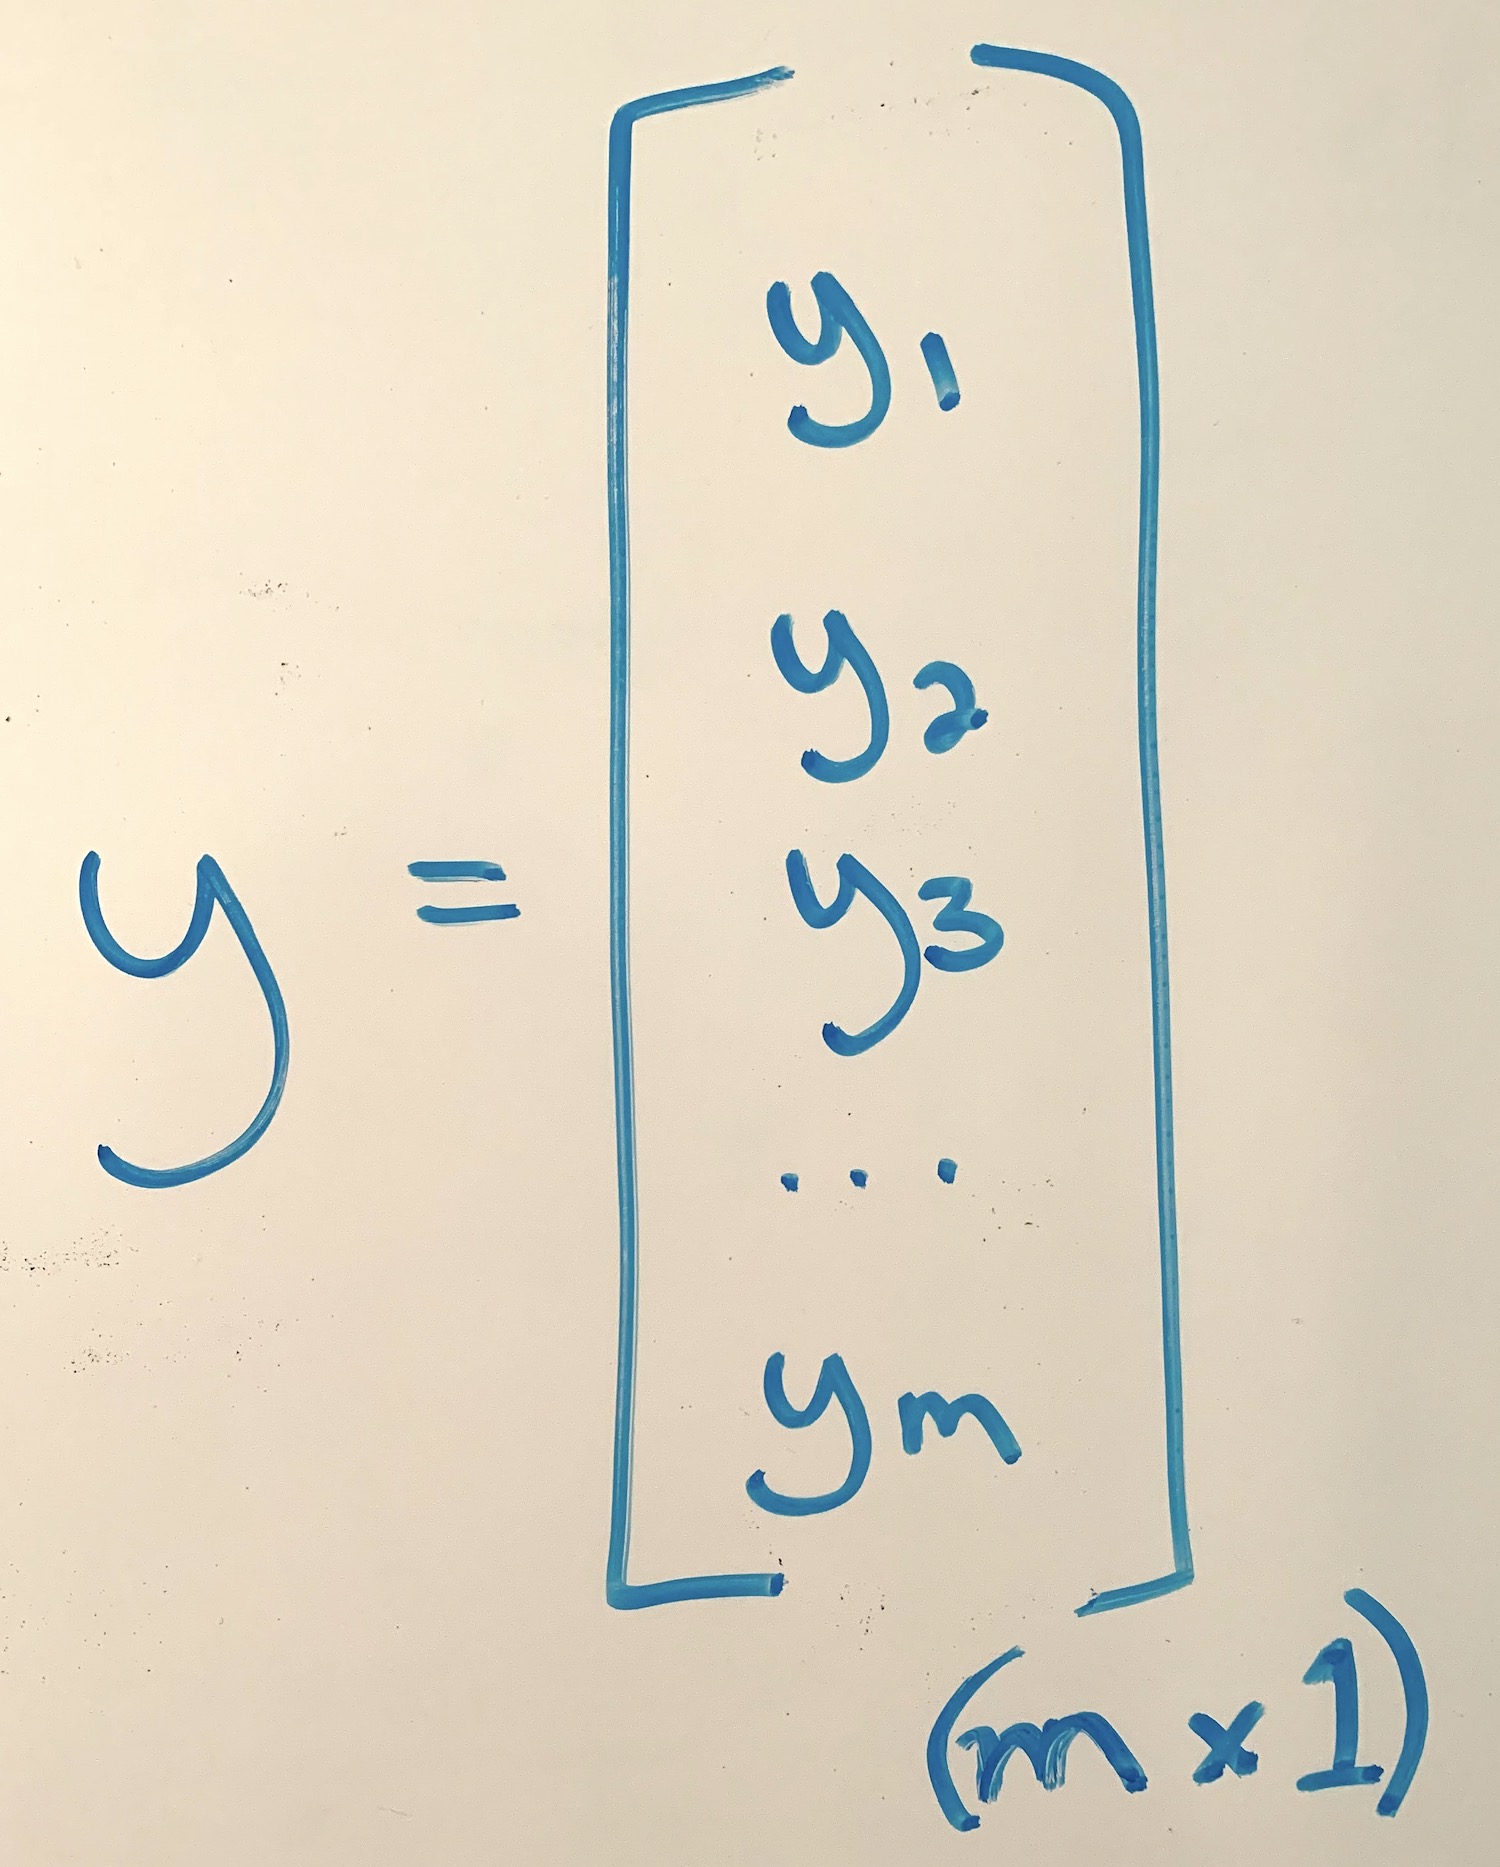 y = [
y1
y2
y3
...
ym
]
(m x 1)